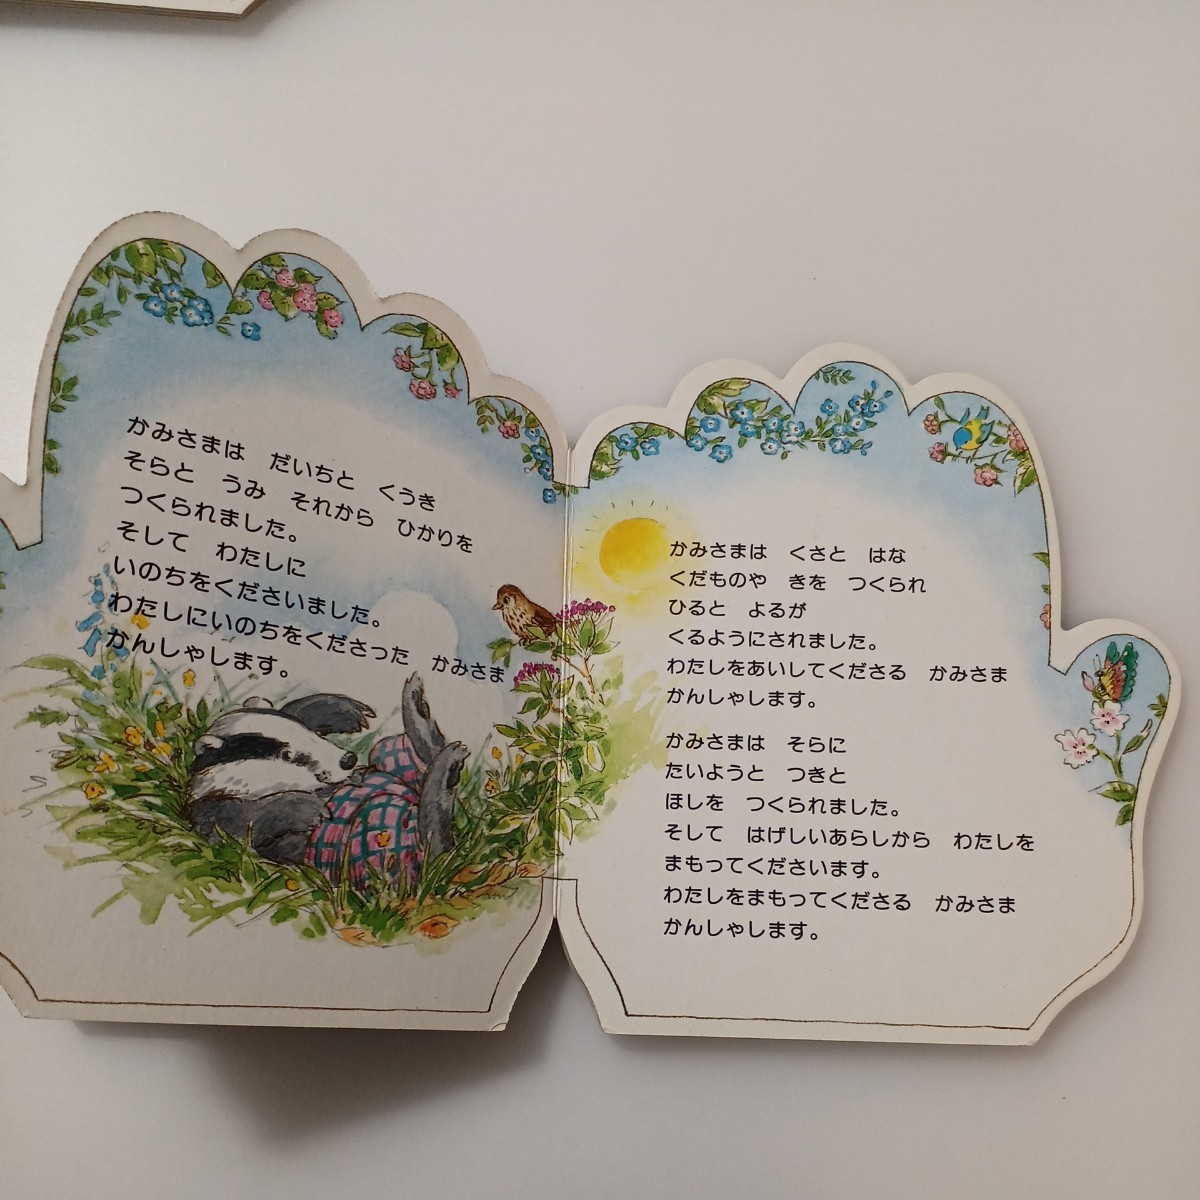 かみさまは　だいちと　くうき
そらと　うみ　それから　ひかりを
つくられました。
そして　わたしに
いのちをくださいました。
わたしにいのちをくださった　かみさま
かんしゃします。
かみさまは　くさと　はな
くだものや　きを　つくられ
ひると　よるが
くるようにされました。
わたしをあいしてくださる　かみさま
かんしゃします。
かみさまは　そらに
たいようと　つきと
ほしを　つくられました。
そして　はげしいあらしから　わたしを
まもってくださいます。
わたしをまもってくださる　かみさま
かんしゃします。